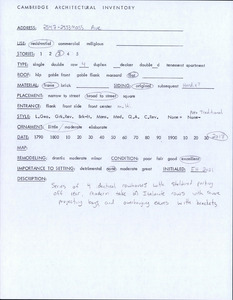 CAMBRIDGE ARCHITECTURAL INVENTORY
ADDRESS: Ave
USE: residential commercial religious
STORIES: 1 2 3 4 5
TYPE: single double row duplex double apartment
ROOF: hip gable front gable flank mansard flat
MATERIAL: frame brick SIDING: original subsequent
PLACEMENT: narrow to street broad to street square
ENTRANCE: flank front side front center
ORNAMENT: little moderate elaborate
DATE: 1790 1800 10 20 30 40 50 60 70 80 90 1900 10 20 30
MAP:
REMODELING: drastic moderate minor CONDITION: poor fair good excellent
IMPORTANCE TO SETTING: detrimental moderate great INITIALED:
DESCRIPTION:
Series of 4 attached rowhouses with
off rear. Modern take on Italianate rows with three
projecting bays and overhanging eaves with brackets